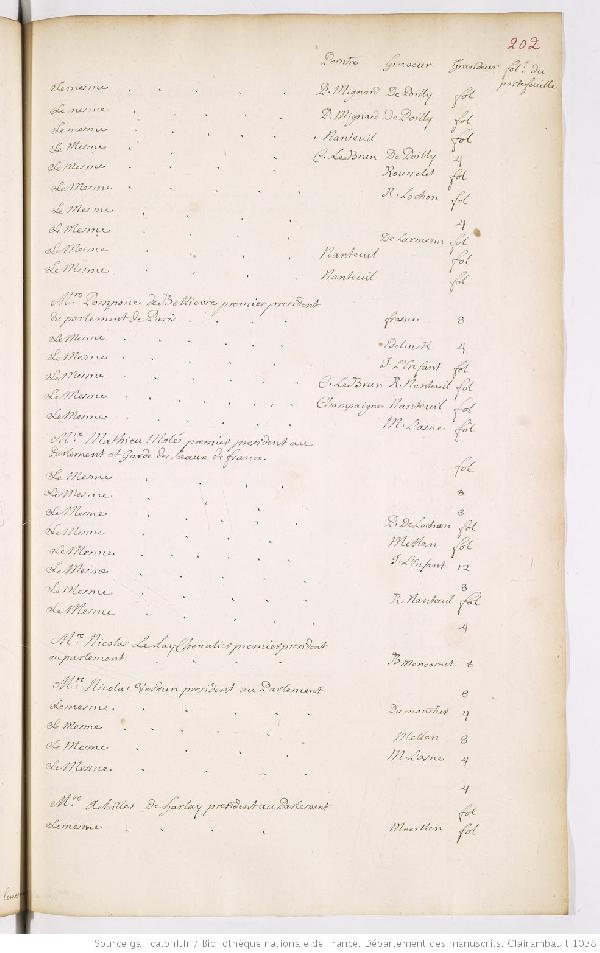 202
Peintre Graveur Grandeur fol.º du portefeuille
Lemesme . . . . . P. Mignard De Poilly fol
Le mesme . . . . . P. Mignard De Poilly fol
Le mesme . . . . . Nanteuil fol
Le Mesme . . . . . C. Le Brun De Poilly 4
Le Mesme . . . . . Rousselet fol
Le Mesme . . . . . R. Lochon fol
Le Mesme . . . . . 4
Le Mesme . . . . . De Larmessin fol
Le Mesme . . . . . Nanteuil fol
Le Mesme . . . . . Nanteuil fol
Mre Pompone de Bellievre premier president
du parlement de Paris . . . . 8
Le Mesme . . . . . 4
Le Mesme . . . . . J. L'Enfant fol
Le Mesme . . . . . C. Le Brun R. Nanteuil fol
Le Mesme . . . . . Champaigne Nanteuil fol
Le Mesme . . . . . M. Lasne fol
Mre Mathieu Molé premier president au
Parlement et Garde des sceaux de france. fol
Le Mesme . . . . . 8
Le Mesme . . . . . 8
Le Mesme . . . . . fol
Le Mesme . . . . . Mellan fol
Le Mesme . . . . . J. L'Enfant 12
Le Mesme . . . . . 8
Le Mesme . . . . . R. Nanteuil fol
Le Mesme . . . . . 4
Mre Nicolas Le Jay premier president
au parlement . . . . B. Moncornet 8
Mre Nicolas president au Parlement 8
Lemesme . . . . . 4
Le Mesme . . . . . Mellan 8
Le Mesme . . . . . M. Lasne 4
Le Mesme . . . . . 4
Mre Achilles De Harlay president au Parlement fol
Lemesme . . . . . fol
Source gallica.bnf.fr / Bibliothèque nationale de France. Département des manuscrits. Clairambault 1038